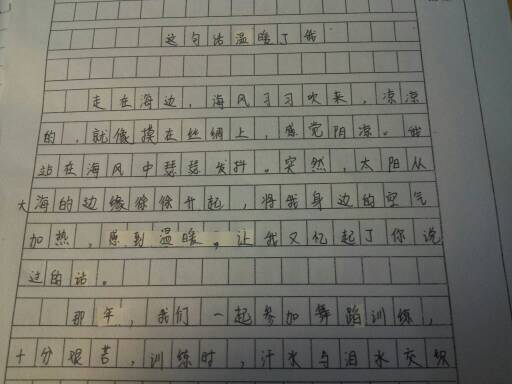 这句话温暖了我
走在海边，海风习习吹来，凉凉
的，就像摸在丝绸上，感觉阴凉。我
站在海风中瑟瑟发抖。突然，太阳从
大海的边缘徐徐升起，将我身边的空气
加热，感到温暖，让我又忆起了你说
过的话。
那年，我们一起参加舞蹈训练，
十分艰苦，训练时，汗水与泪水交织